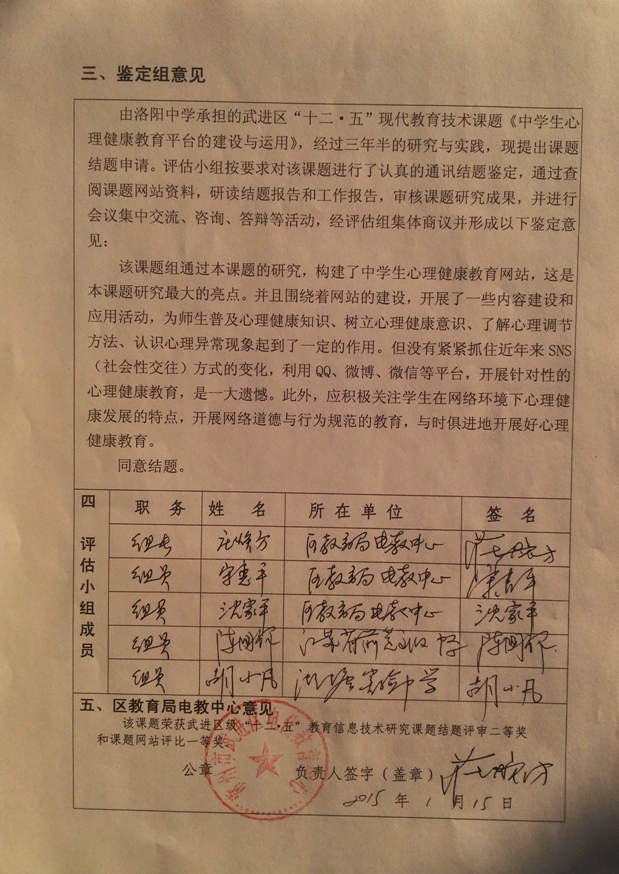 三、鉴定组意见
由洛阳中学承担的武进区“十二·五”现代教育技术课题《中学生心
理健康教育平台的建设与运用》，经过三年半的研究与实践，现提出课题
结题申请。评估小组按要求对该课题进行了认真的通讯结题鉴定，通过查
阅课题网站资料，研读结题报告和工作报告，审核课题研究成果，并进行
会议集中交流、咨询、答辩等活动，经评估组集体商议并形成以下鉴定意
见：
该课题组通过本课题的研究，构建了中学生心理健康教育网站，这是
本课题研究最大的亮点。并且围绕着网站的建设，开展了一些内容建设和
应用活动，为师生普及心理健康知识、树立心理健康意识、了解心理调节
方法、认识心理异常现象起到了一定的作用。但没有紧紧抓住近年来 SNS
（社会性交往）方式的变化，利用QQ、微博、微信等平台，开展针对性的
心理健康教育，是一大遗憾。此外，应积极关注学生在网络环境下心理健
康发展的特点，开展网络道德与行为规范的教育，与时俱进地开展好心理
健康教育。
同意结题。
四 评估小组成员
职 务 姓 名 所 在 单 位 签 名
组长 区教育局电教中心
组员 区教育局电教中心
组员 沈家平 区教育局电教中心 沈家平
组员
组员 胡小凡 湖塘实验中学 胡小凡
五、区教育局电教中心意见
该课题荣获武进区级“十二·五”教育信息技术研究课题结题评审二等奖
和课题网站评比一等奖。
公章 负责人签字（盖章）
2015 年 1 月 15 日